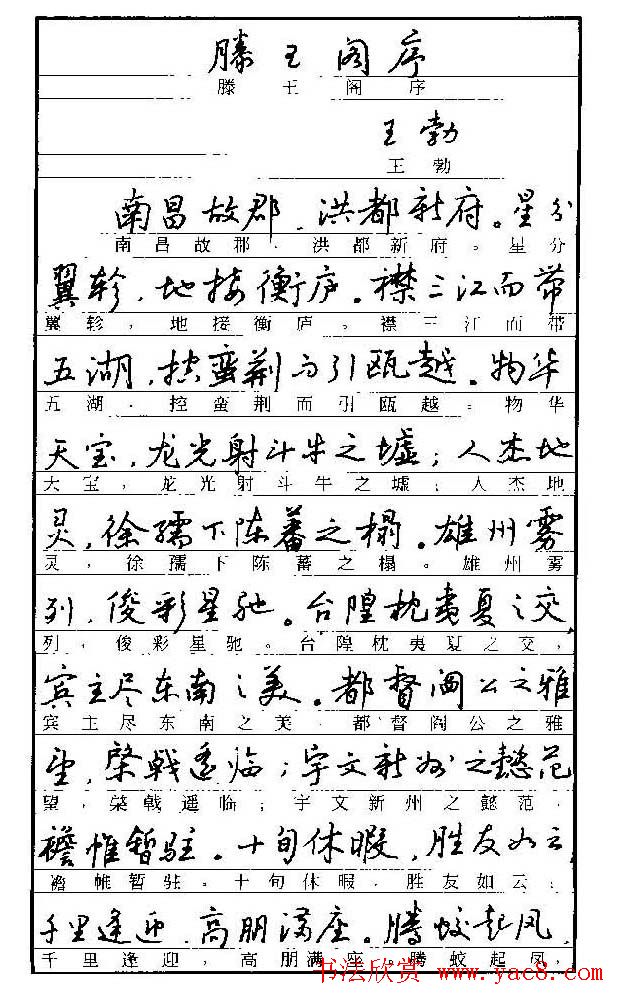 滕王阁序
滕王阁序
王勃
王勃
南昌故郡，洪都新府。星分
南昌故郡，洪都新府。星分
翼轸，地接衡庐。襟三江而带
翼轸，地接衡庐。襟三江而带
五湖，控蛮荆而引瓯越。物华
五湖，控蛮荆而引瓯越。物华
天宝，龙光射斗牛之墟；人杰地
天宝，龙光射斗牛之墟；人杰地
灵，徐孺下陈蕃之榻。雄州雾
灵，徐孺下陈蕃之榻。雄州雾
列，俊彩星驰。台隍枕夷夏之交，
列，俊彩星驰。台隍枕夷夏之交，
宾主尽东南之美。都督阎公之雅
宾主尽东南之美。都督阎公之雅
望，棨戟遥临；宇文新州之懿范
望，棨戟遥临；宇文新州之懿范，
襜帷暂驻。十旬休暇，胜友如云，
襜帷暂驻。十旬休暇，胜友如云；
千里逢迎，高朋满座。腾蛟起凤，
千里逢迎，高朋满座。腾蛟起凤，
书法欣赏 www.yac8.com